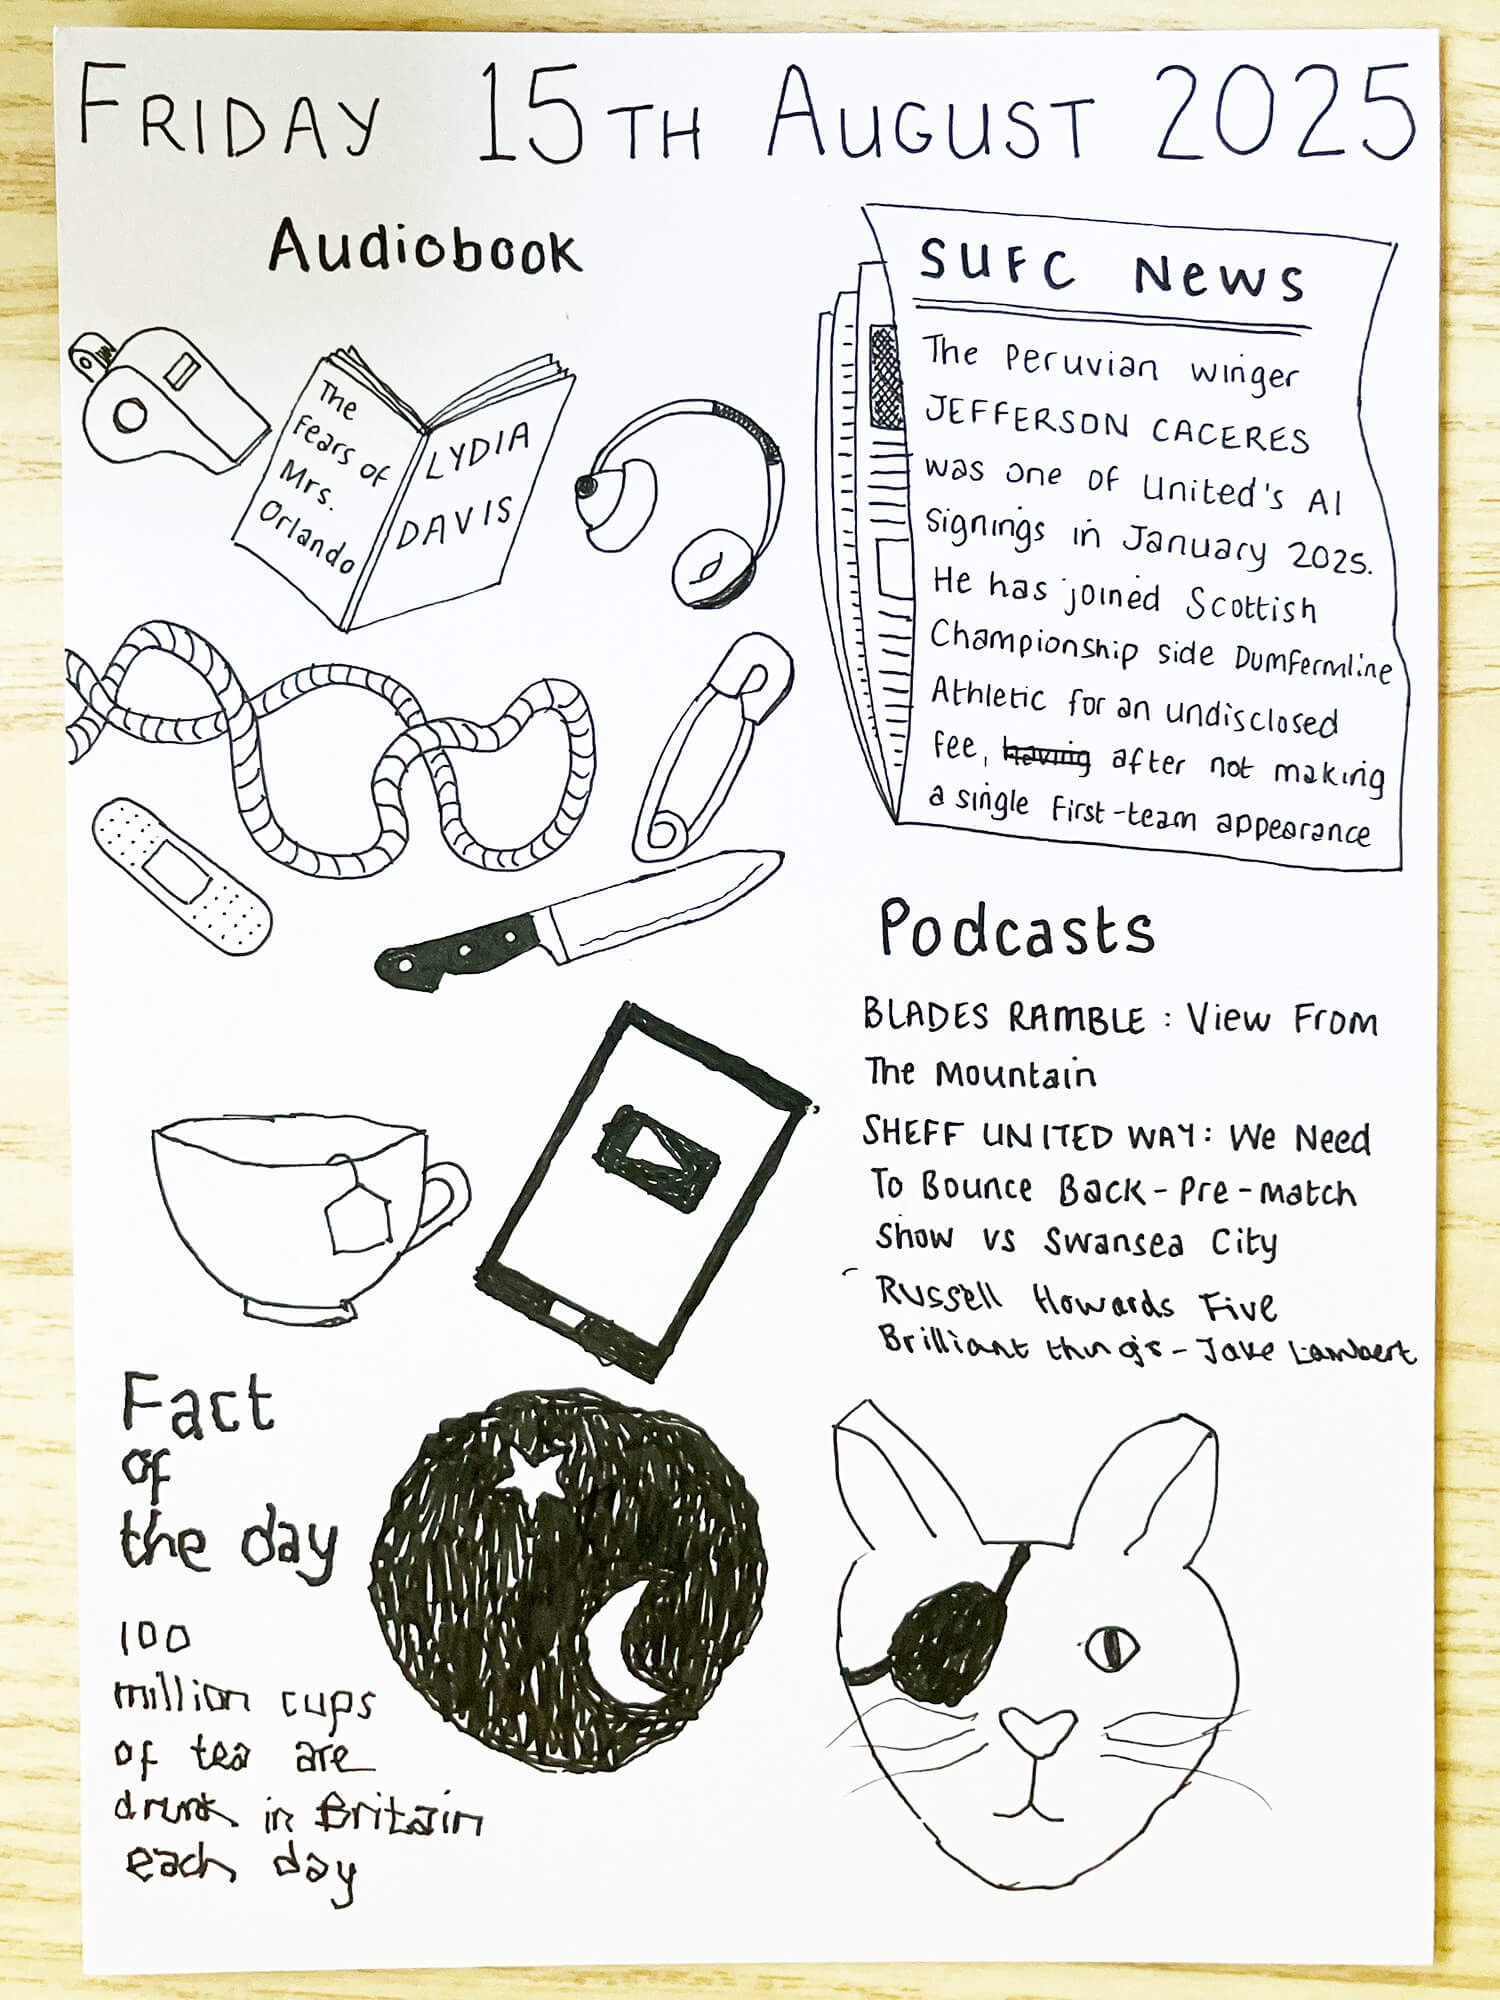 FRIDAY 15TH AUGUST 2025
Audiobook
The
Fears of
Mrs.
Orlando
LYDIA
DAVIS
SUFC News
The Peruvian winger
JEFFERSON CACERES
was one of United's AI
signings in January 2025.
He has joined Scottish
Championship side Dumfermline
Athletic for an undisclosed
fee, having after not making
a single first-team appearance
Podcasts
BLADES RAMBLE : View From
The Mountain
SHEFF UNITED WAY: We Need
To Bounce Back - Pre-match
Show vs Swansea City
Russell Howards Five
Brilliant things - Jake Lambert
Fact
of
the day
100
million cups
of tea are
drunk in Britain
each day